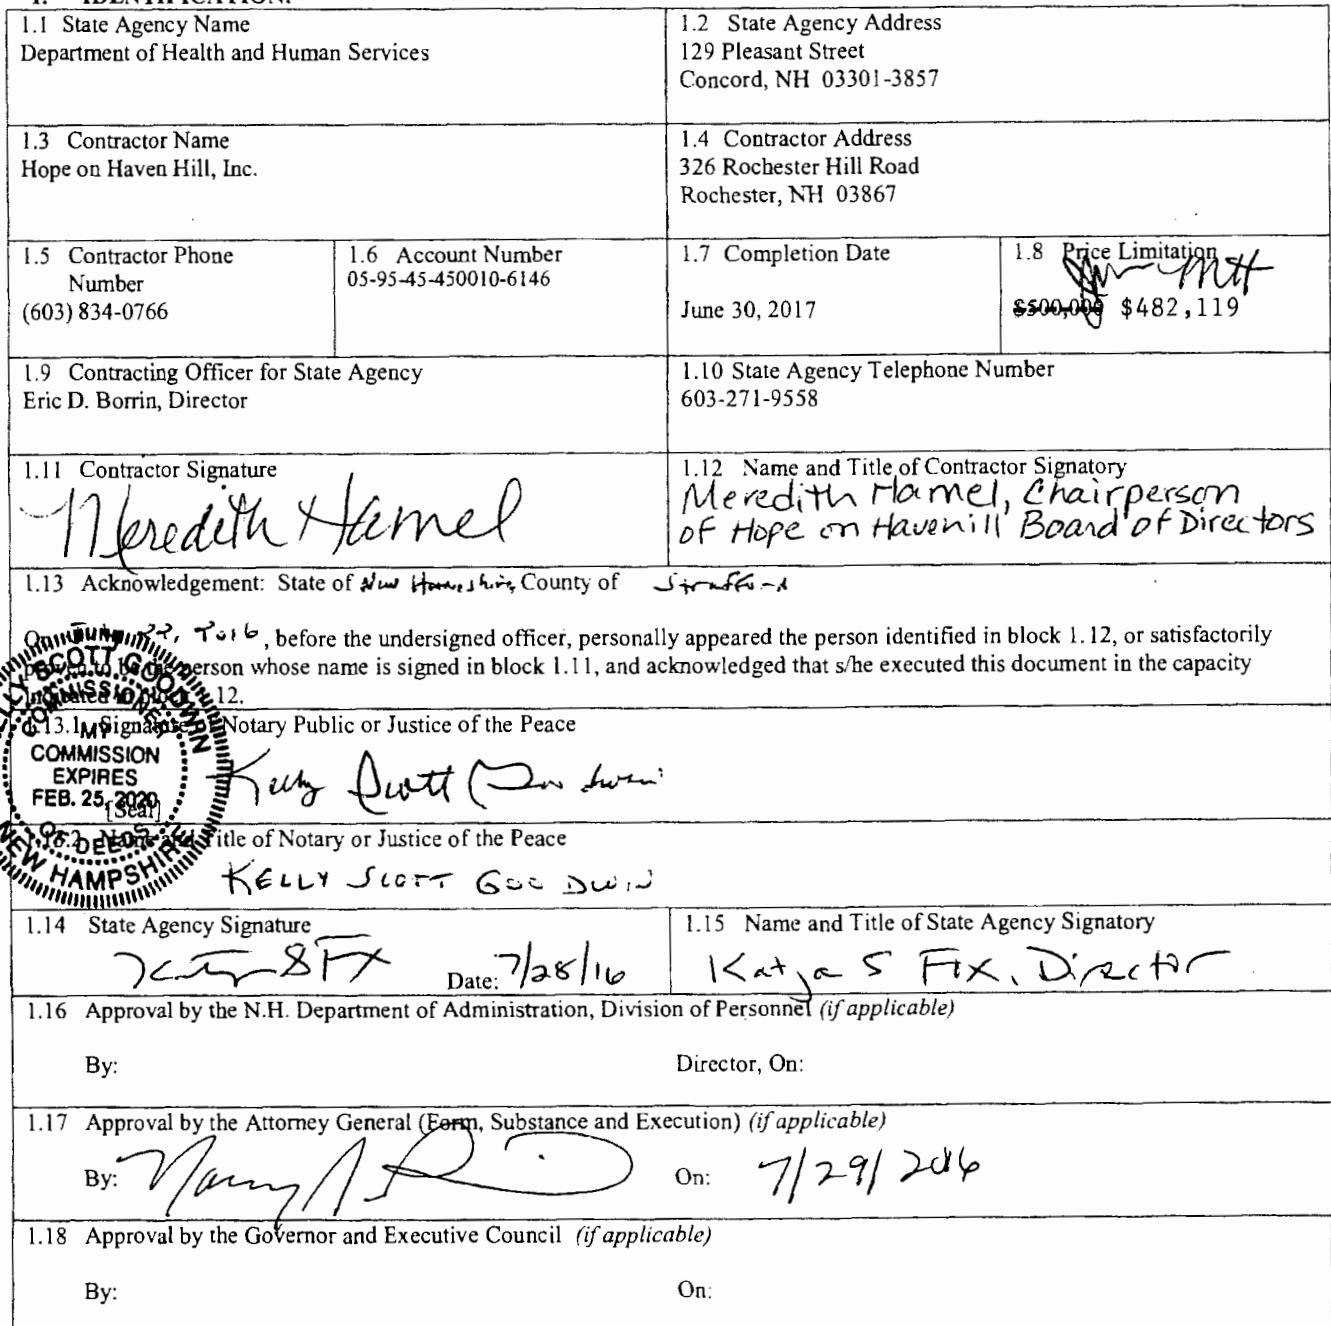 1. IDENTIFICATION.
1.1 State Agency Name
Department of Health and Human Services
1.2 State Agency Address
129 Pleasant Street
Concord, NH 03301-3857
1.3 Contractor Name
Hope on Haven Hill, Inc.
1.4 Contractor Address
326 Rochester Hill Road
Rochester, NH 03867
1.5 Contractor Phone
Number
(603) 834-0766
1.6 Account Number
05-95-45-450010-6146
1.7 Completion Date
June 30, 2017
1.8 Price Limitation
MH
$500,000 $482,119
1.9 Contracting Officer for State Agency
Eric D. Borrin, Director
1.10 State Agency Telephone Number
603-271-9558
1.11 Contractor Signature
Meredith Hamel
1.12 Name and Title of Contractor Signatory
Meredith Hamel, Chairperson
of Hope on Havenill Board of Directors
1.13 Acknowledgement: State of New Hampshire County of Strafford
On 22, 2016, before the undersigned officer, personally appeared the person identified in block 1.12, or satisfactorily
proven to be the person whose name is signed in block 1.11, and acknowledged that s/he executed this document in the capacity
indicated in block 1.12.
1.13.1 Signature of Notary Public or Justice of the Peace
Kelly Scott Goodwin
KELLY SCOTT GOODWIN
COMMISSIONER
MY
COMMISSION
EXPIRES
FEB. 25, 2020
[Seal]
OF DEEDS
NEW HAMPSHIRE
1.13.2 Name and Title of Notary or Justice of the Peace
KELLY SCOTT GOODWIN
1.14 State Agency Signature
Date: 7/28/16
1.15 Name and Title of State Agency Signatory
Katja S Fox, Director
1.16 Approval by the N.H. Department of Administration, Division of Personnel (if applicable)
By:
Director, On:
1.17 Approval by the Attorney General (Form, Substance and Execution) (if applicable)
By:
On: 7/29/2016
1.18 Approval by the Governor and Executive Council (if applicable)
By:
On: